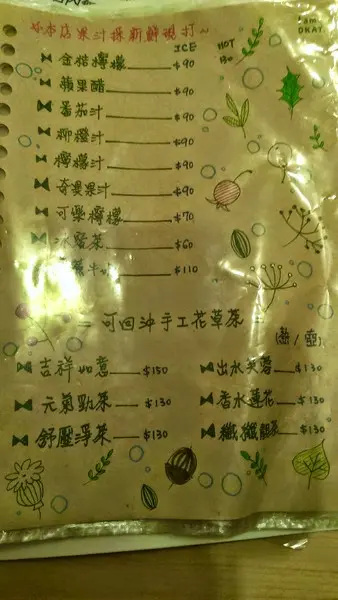 本店果汁採新鮮現打~
ICE
HOT
130
I am
OKAY
金桔檸檬 $90
蘋果醋 $90
番茄汁 $90
柳橙汁 $90
檸檬汁 $90
奇異果汁 $90
可樂檸檬 $70
冰紅茶 $60
$110
可回沖手工花草茶
(熱/壺)
吉祥如意 $150
出水芙蓉 $130
元氣勁茶 $130
香水蓮花 $130
舒壓淨茶 $130
纖纖茶 $130